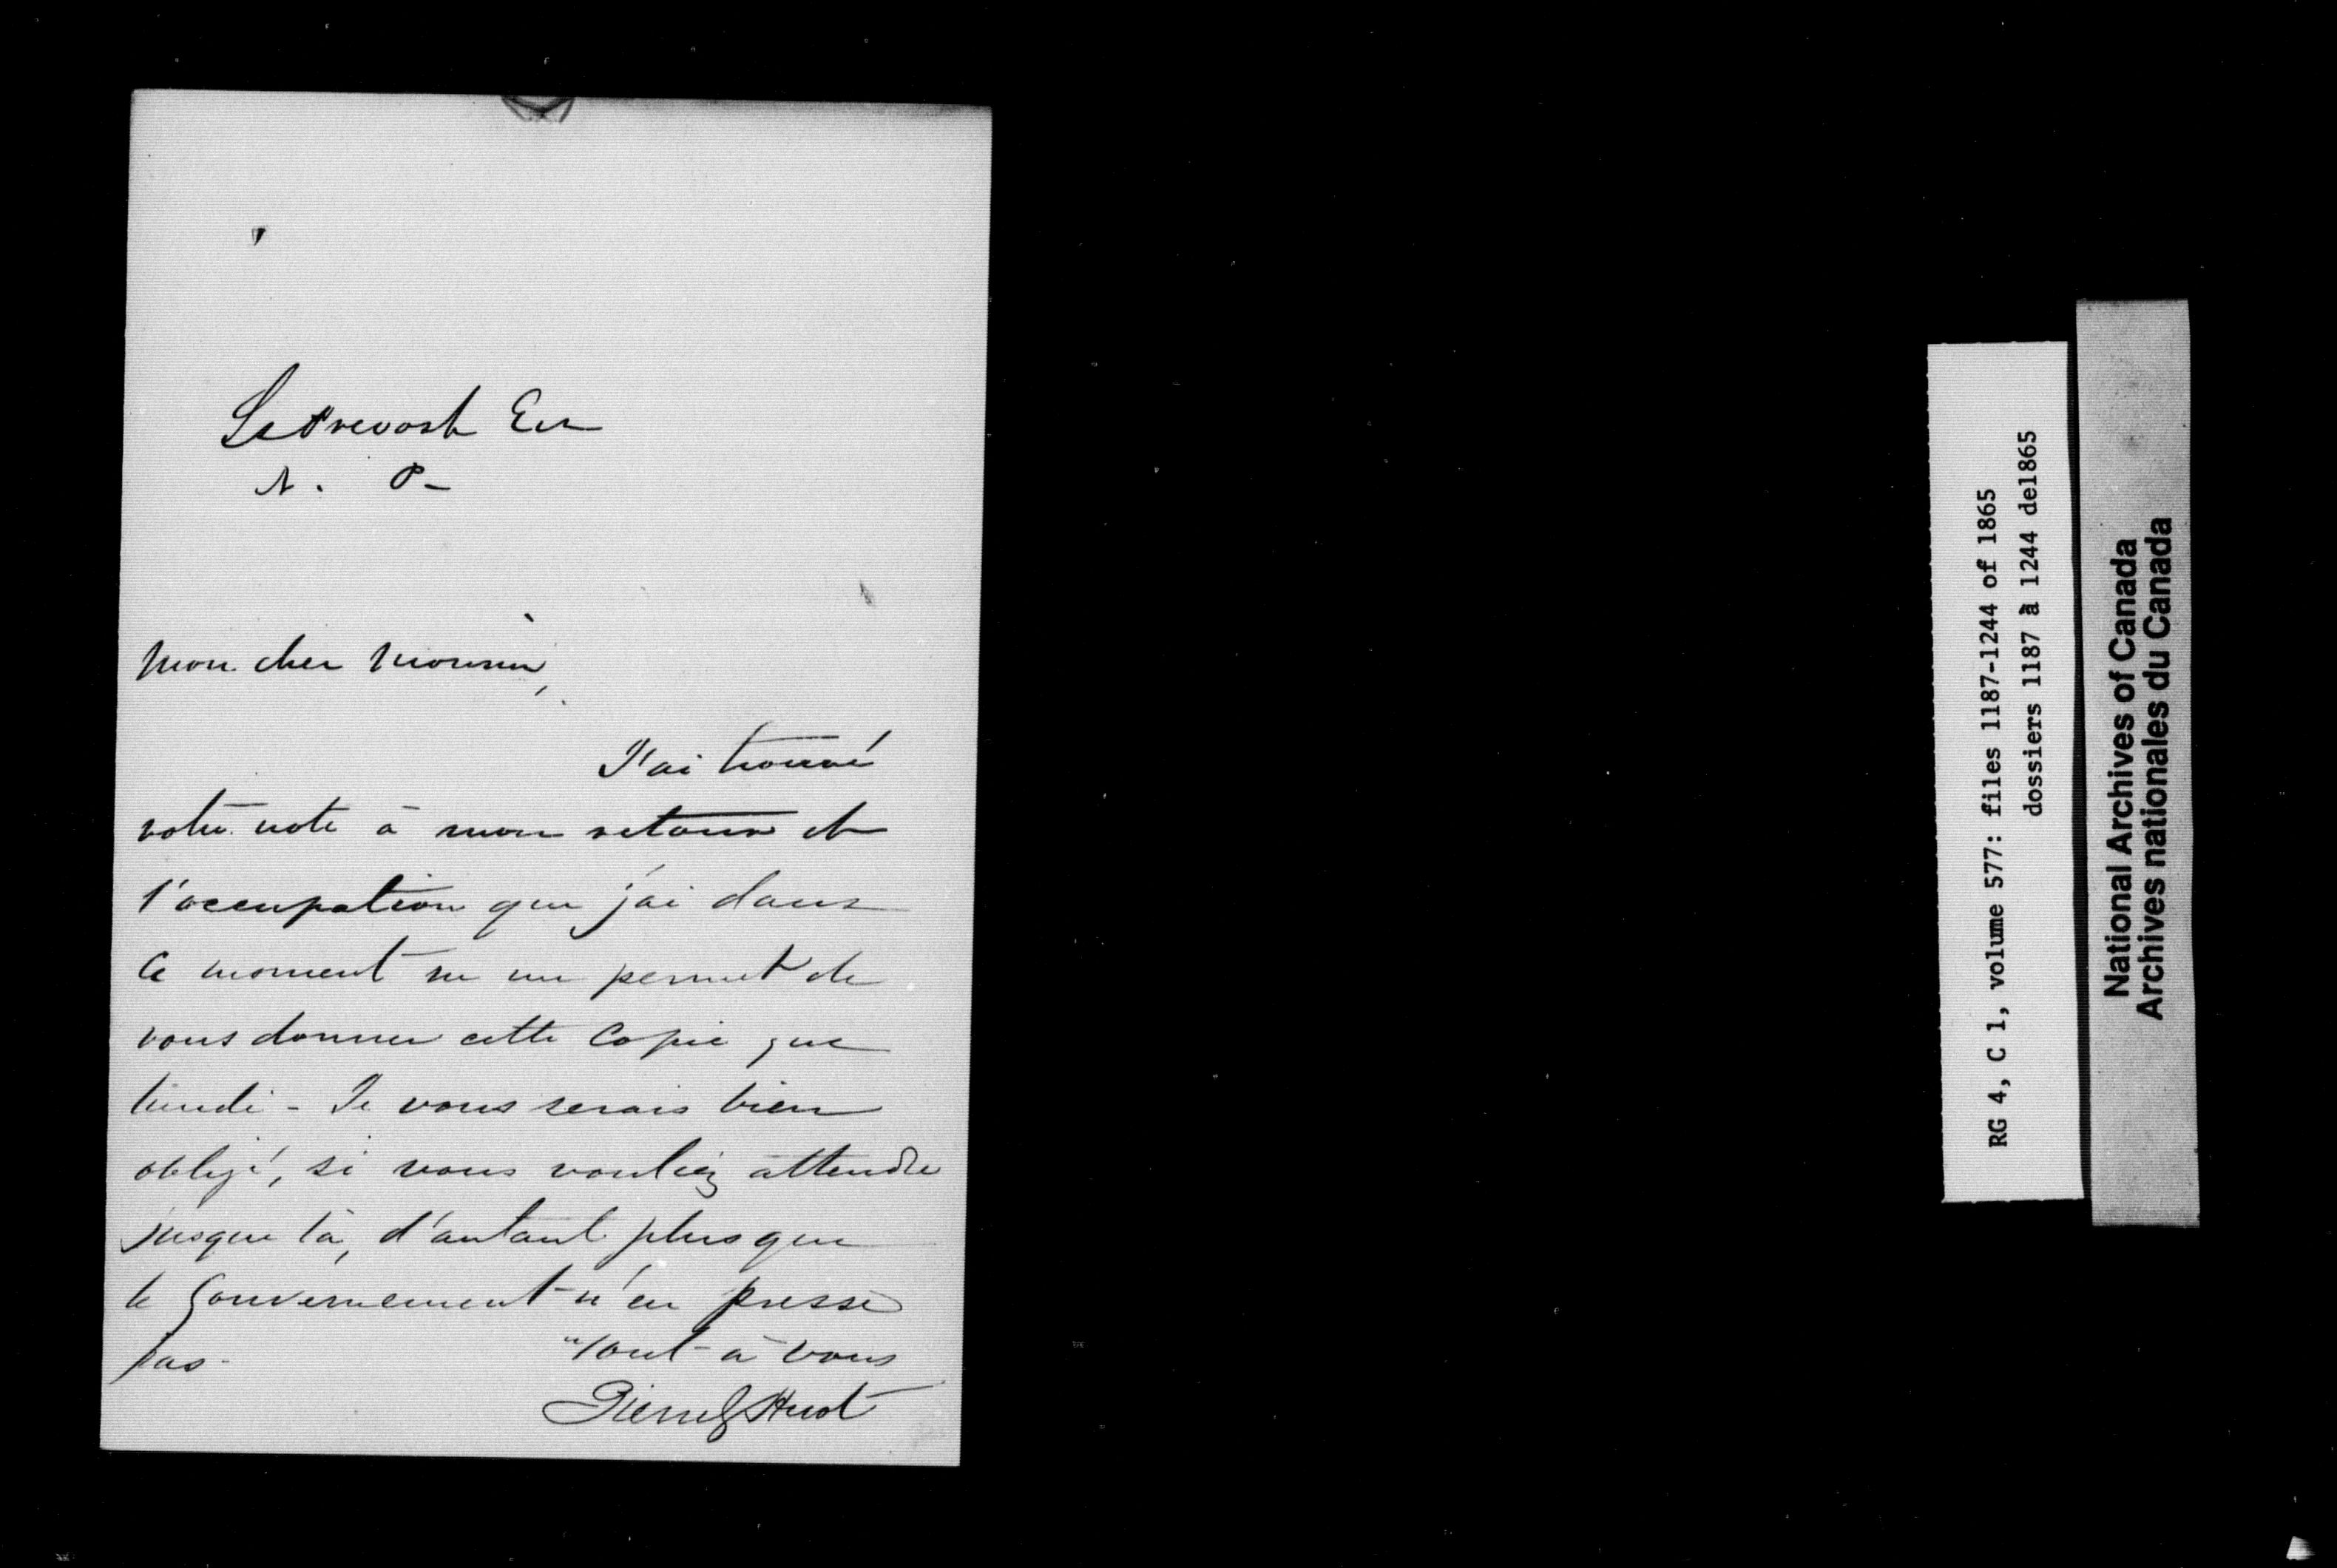 LeProvost Ecr
N. P-
Mon cher Monsieur,
J'ai trouvé
votre note à mon retour et
l'occupation que j'ai dans
ce moment ne me permet de
vous donner cette copie que
lundi - Je vous serais bien
obligé, si vous vouliez attendre
jusque là, d'autant plus que
le Gouvernement n'en presse
pas -
Tout à vous
Pierre Huot
RG 4, C 1, volume 577: files 1187-1244 of 1865
dossiers 1187 à 1244 de1865
National Archives of Canada
Archives nationales du Canada